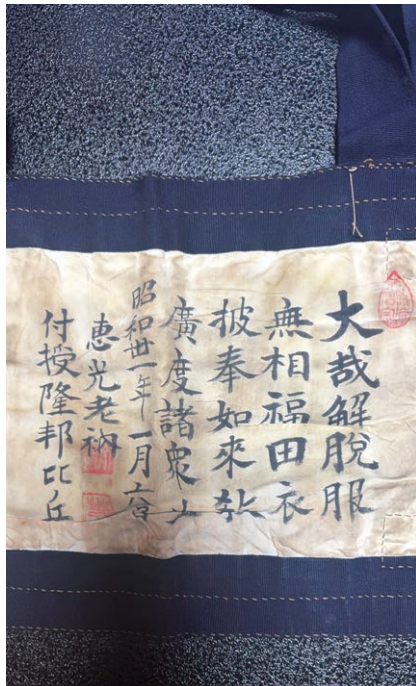 大哉解脱服
無相福田衣
披奉如來教
廣度諸衆生
昭和丗一年一月六日
惠光老衲
付授隆邦比丘